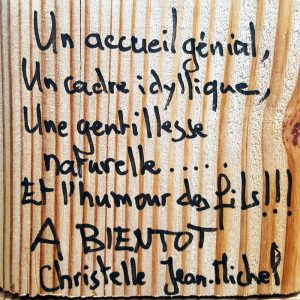 Un accueil génial,
Un cadre idyllique,
Une gentillesse
naturelle.....
Et l'humour des fils!!!
A BIENTOT
Christelle Jean.Michel